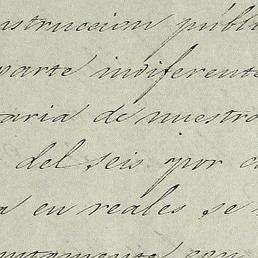 nstruccion públi
parte indiferente
taria de nuestro
del seis por c
a en reales se